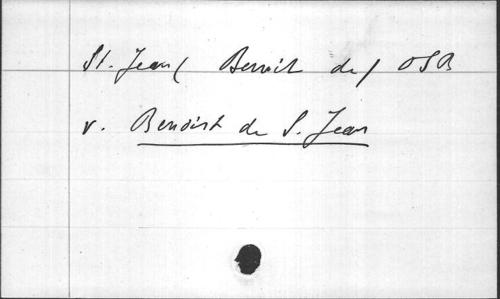 St. Jean ( Benoit de ) OSB
v. Benoist de S. Jean